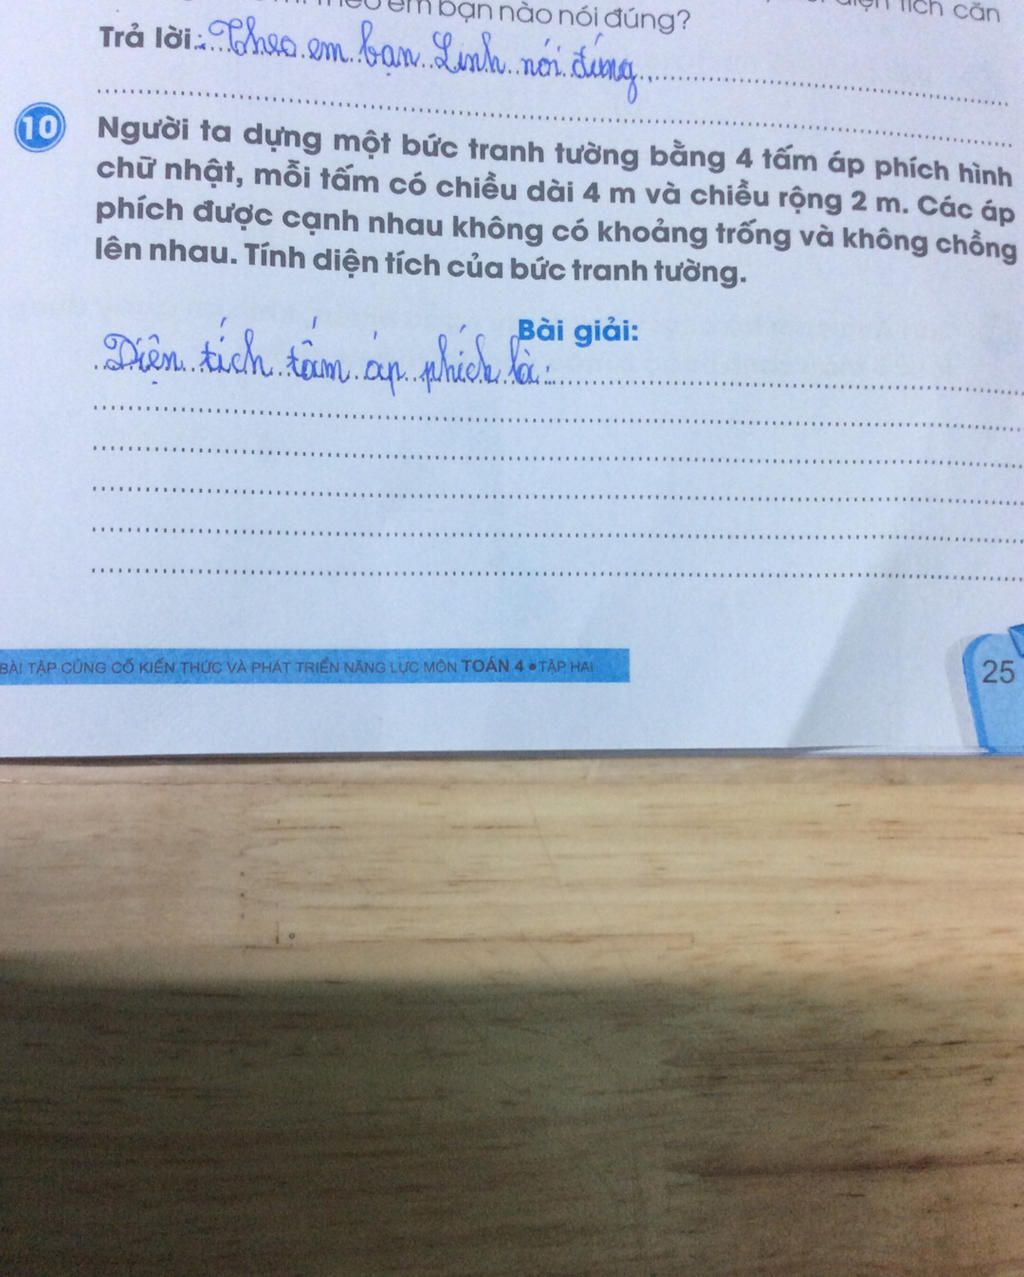 em bạn nào nói đúng?
diện tích căn
Trả lời: Theo em bạn Linh nói đúng
10 Người ta dựng một bức tranh tường bằng 4 tấm áp phích hình
chữ nhật, mỗi tấm có chiều dài 4 m và chiều rộng 2 m. Các áp
phích được cạnh nhau không có khoảng trống và không chồng
lên nhau. Tính diện tích của bức tranh tường.
Bài giải:
Diện tích tấm áp phích là:
BÀI TẬP CỦNG CỐ KIẾN THỨC VÀ PHÁT TRIỂN NĂNG LỰC MÔN TOÁN 4 • TẬP HAI
25